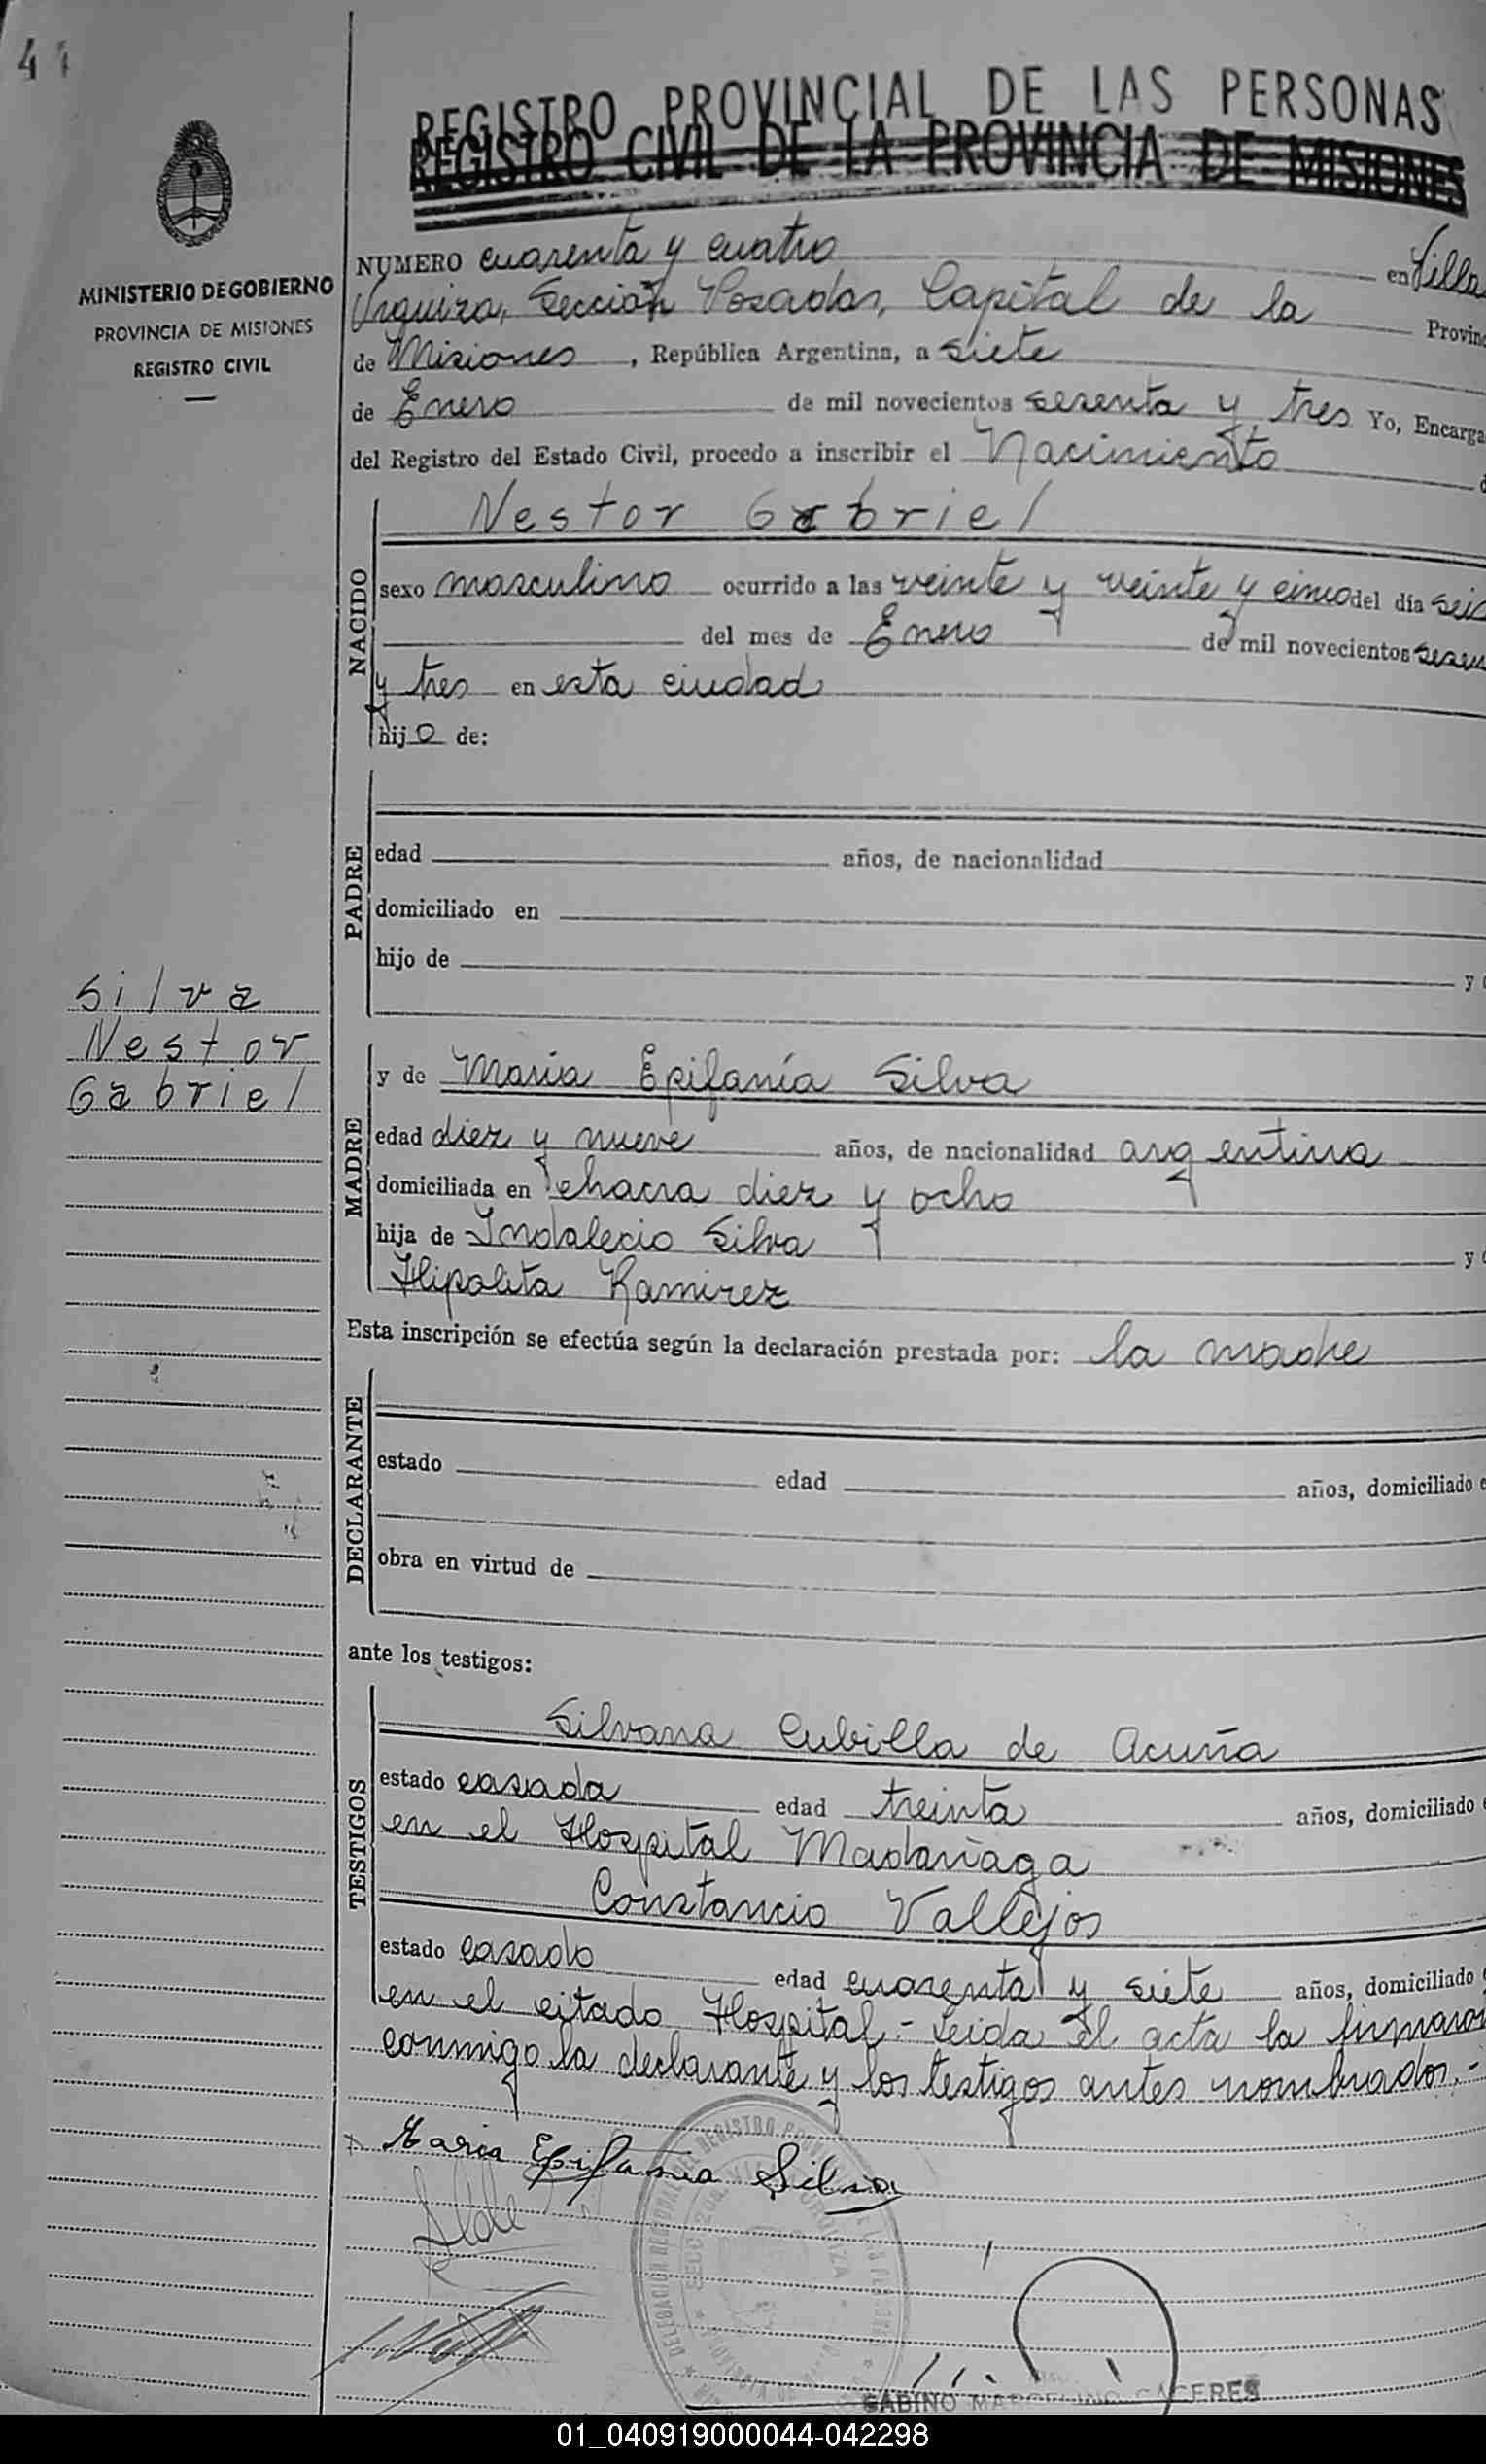 44
REGISTRO PROVINCIAL DE LAS PERSONAS
REGISTRO CIVIL DE LA PROVINCIA DE MISIONES
MINISTERIO DE GOBIERNO
PROVINCIA DE MISIONES
REGISTRO CIVIL
NUMERO cuarenta y cuatro en Villa
Urquiza, Sección Posadas, Capital de la Provinc
de Misiones, República Argentina, a siete
de Enero de mil novecientos sesenta y tres Yo, Encarga
del Registro del Estado Civil, procedo a inscribir el Nacimiento d
NACIDO
Nestor Gabriel
sexo masculino ocurrido a las veinte y veinte y cinco del día seis
del mes de Enero de mil novecientos sesen
y tres en esta ciudad
hijo de:
PADRE
edad años, de nacionalidad
domiciliado en
hijo de y d
Silva
Nestor
Gabriel
MADRE
y de María Epifanía Silva
edad diez y nueve años, de nacionalidad argentina
domiciliada en chacra diez y ocho
hija de Indalecio Silva y d
Hipolita Ramirez
Esta inscripción se efectúa según la declaración prestada por: la madre
DECLARANTE
estado edad años, domiciliado e
obra en virtud de
ante los testigos:
TESTIGOS
Silvana Cubilla de Acuña
estado casada edad treinta años, domiciliado e
en el Hospital Madariaga
Constancio Vallejos
estado casado edad cuarenta y siete años, domiciliado e
en el citado Hospital.- Leida el acta la firmaron
conmigo la declarante y los testigos antes nombrados.-
Maria Epifania Silva
SABINO MARCELINO CACERES
01_040919000044-042298